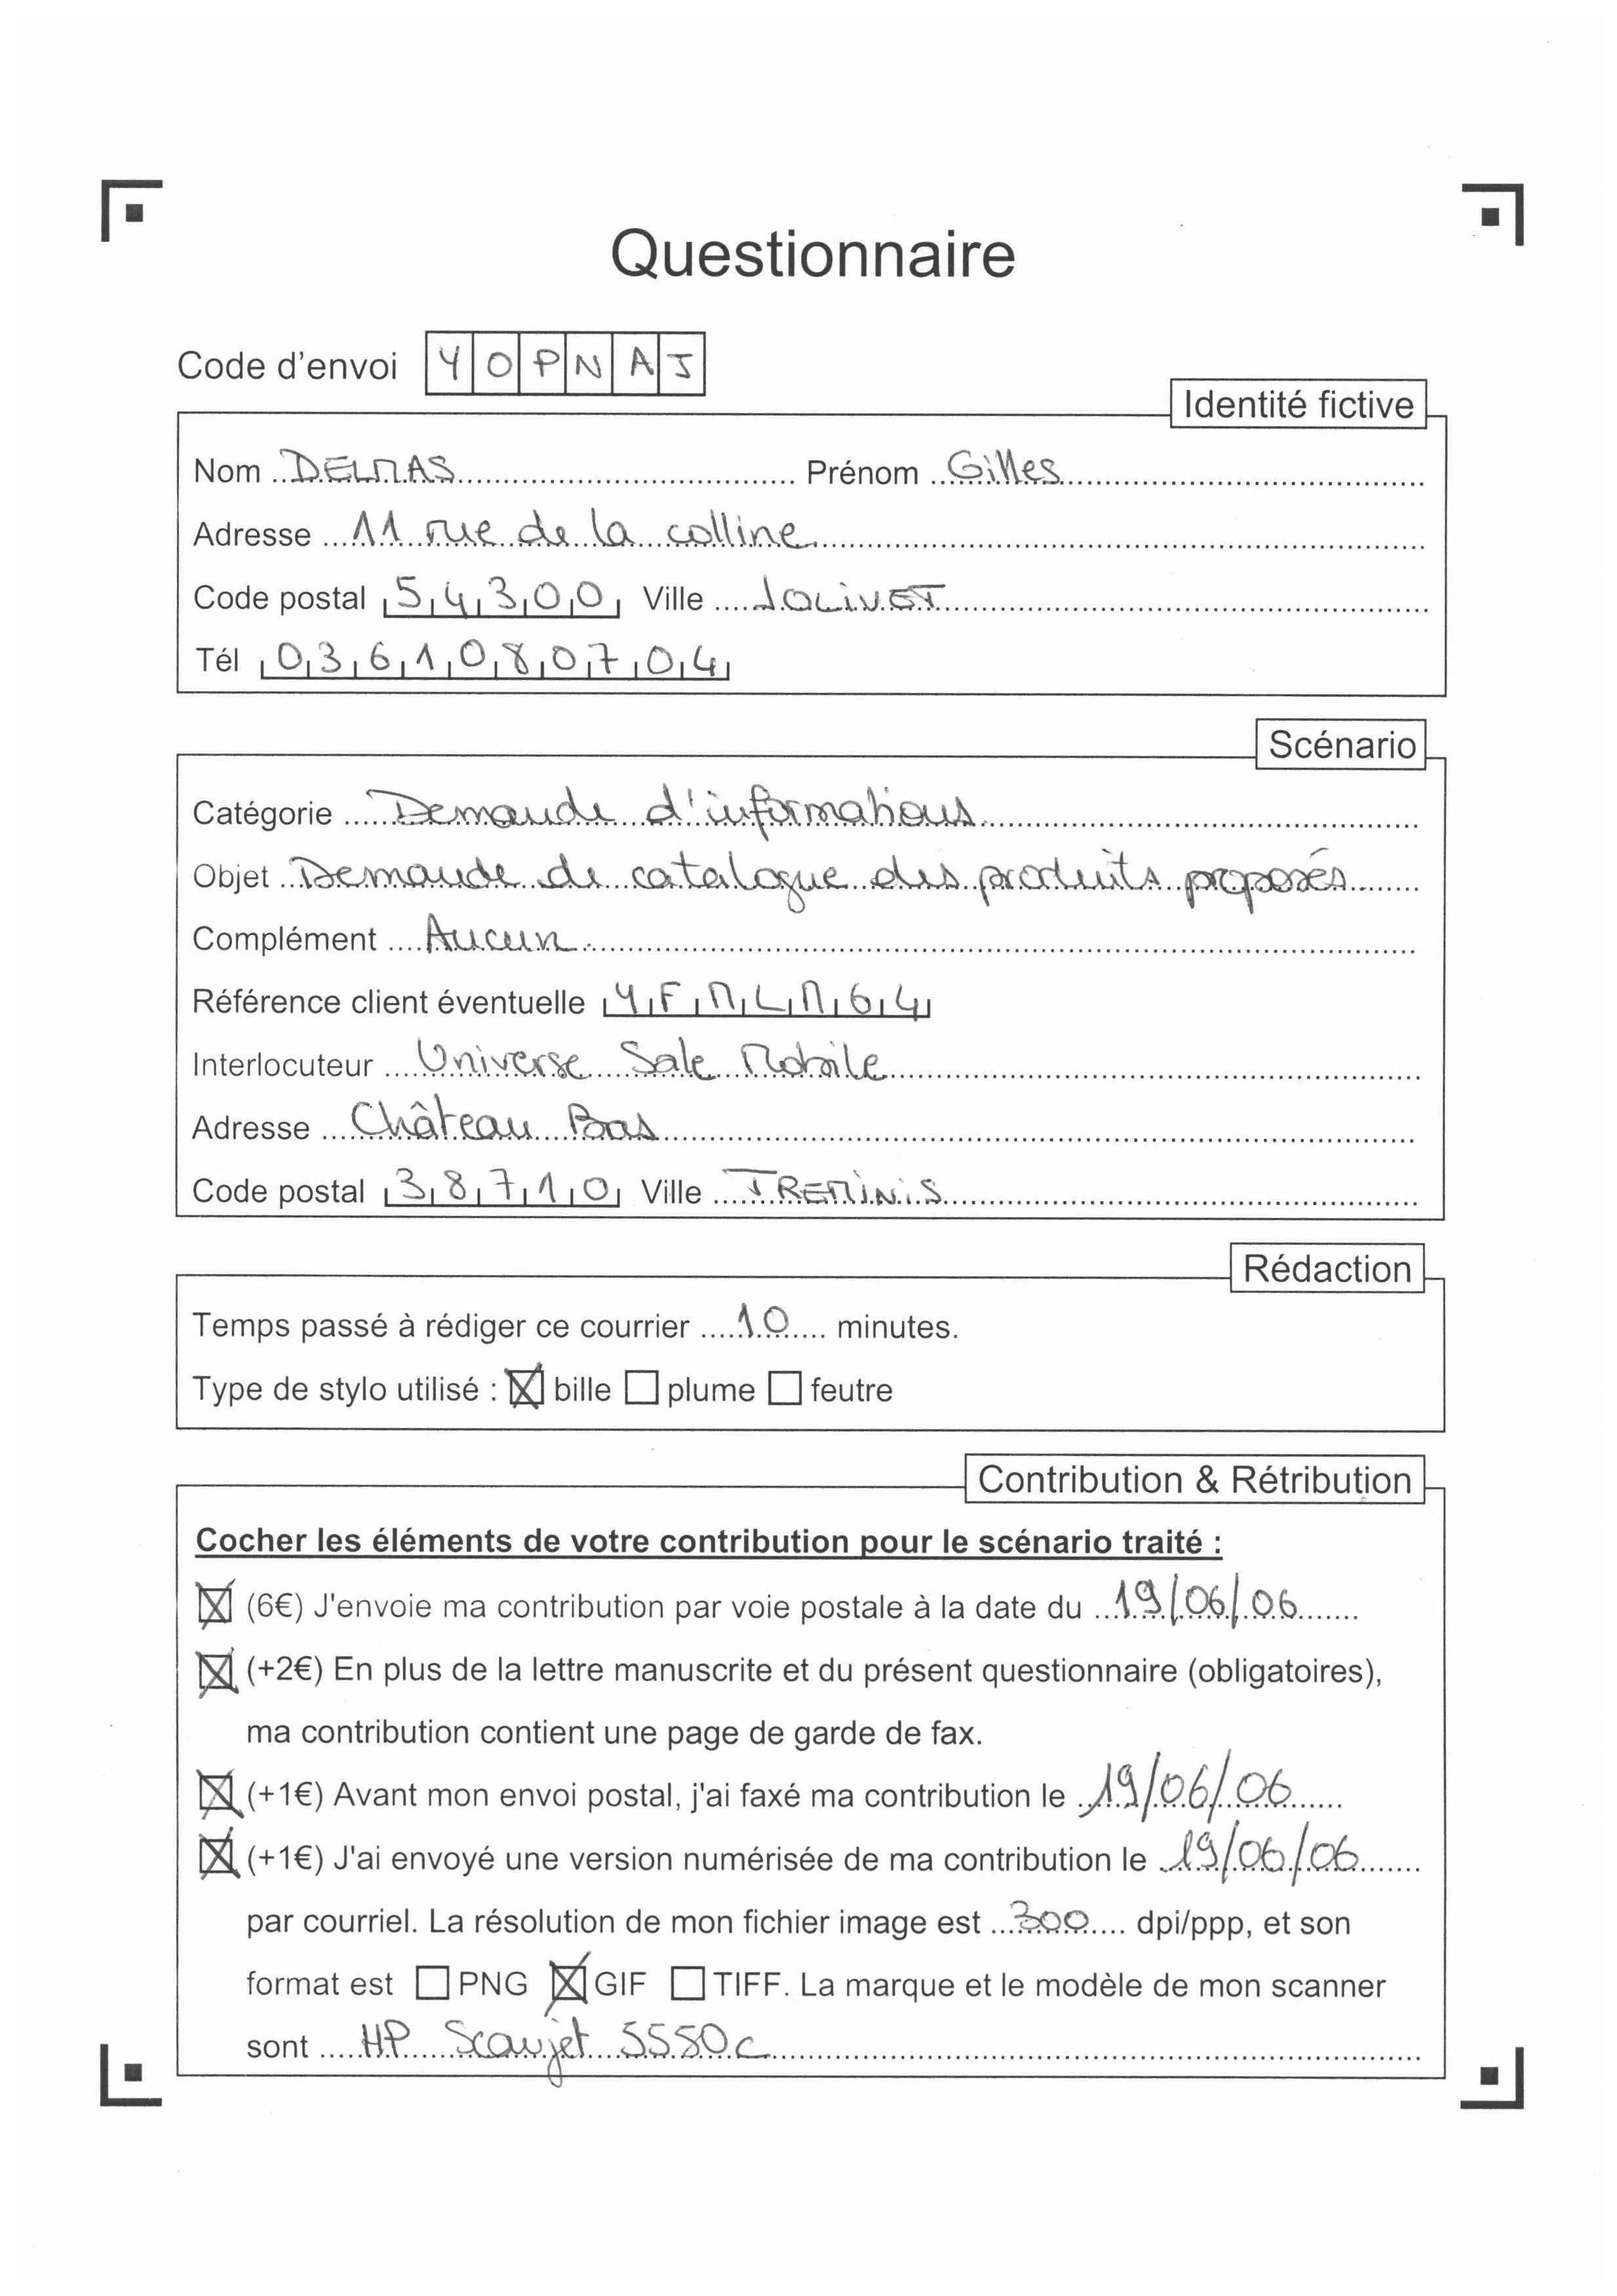 Questionnaire
Code d'envoi YOPNAJ
Identité fictive
Nom DELMAS Prénom Gilles
Adresse 11 rue de la colline
Code postal 54300 Ville JOLIVET
Tél 0361080704
Scénario
Catégorie Demande d'informations
Objet Demande de catalogue des produits proposés
Complément Aucun
Référence client éventuelle YFMLM64
Interlocuteur Universe Sale Mobile
Adresse Château Bas
Code postal 38710 Ville TREMINIS
Rédaction
Temps passé à rédiger ce courrier 10 minutes.
Type de stylo utilisé : ☒ bille ☐ plume ☐ feutre
Contribution & Rétribution
Cocher les éléments de votre contribution pour le scénario traité :
☒ (6€) J'envoie ma contribution par voie postale à la date du 19/06/06
☒ (+2€) En plus de la lettre manuscrite et du présent questionnaire (obligatoires),
ma contribution contient une page de garde de fax.
☒ (+1€) Avant mon envoi postal, j'ai faxé ma contribution le 19/06/06
☒ (+1€) J'ai envoyé une version numérisée de ma contribution le 19/06/06
par courriel. La résolution de mon fichier image est 300 dpi/ppp, et son
format est ☐ PNG ☒ GIF ☐ TIFF. La marque et le modèle de mon scanner
sont HP Scanjet 5550c